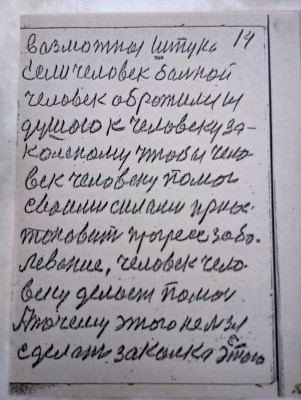 возможная штука 14
Если человек болной
человек обротили и
душого к человеку за-
каленому чтобы чело
век человеку помог
своими силами приос-
тоновит прогресс забо-
левание, человек чело-
веку делает помощ
А почему этого нелзя
сделать закалка этого